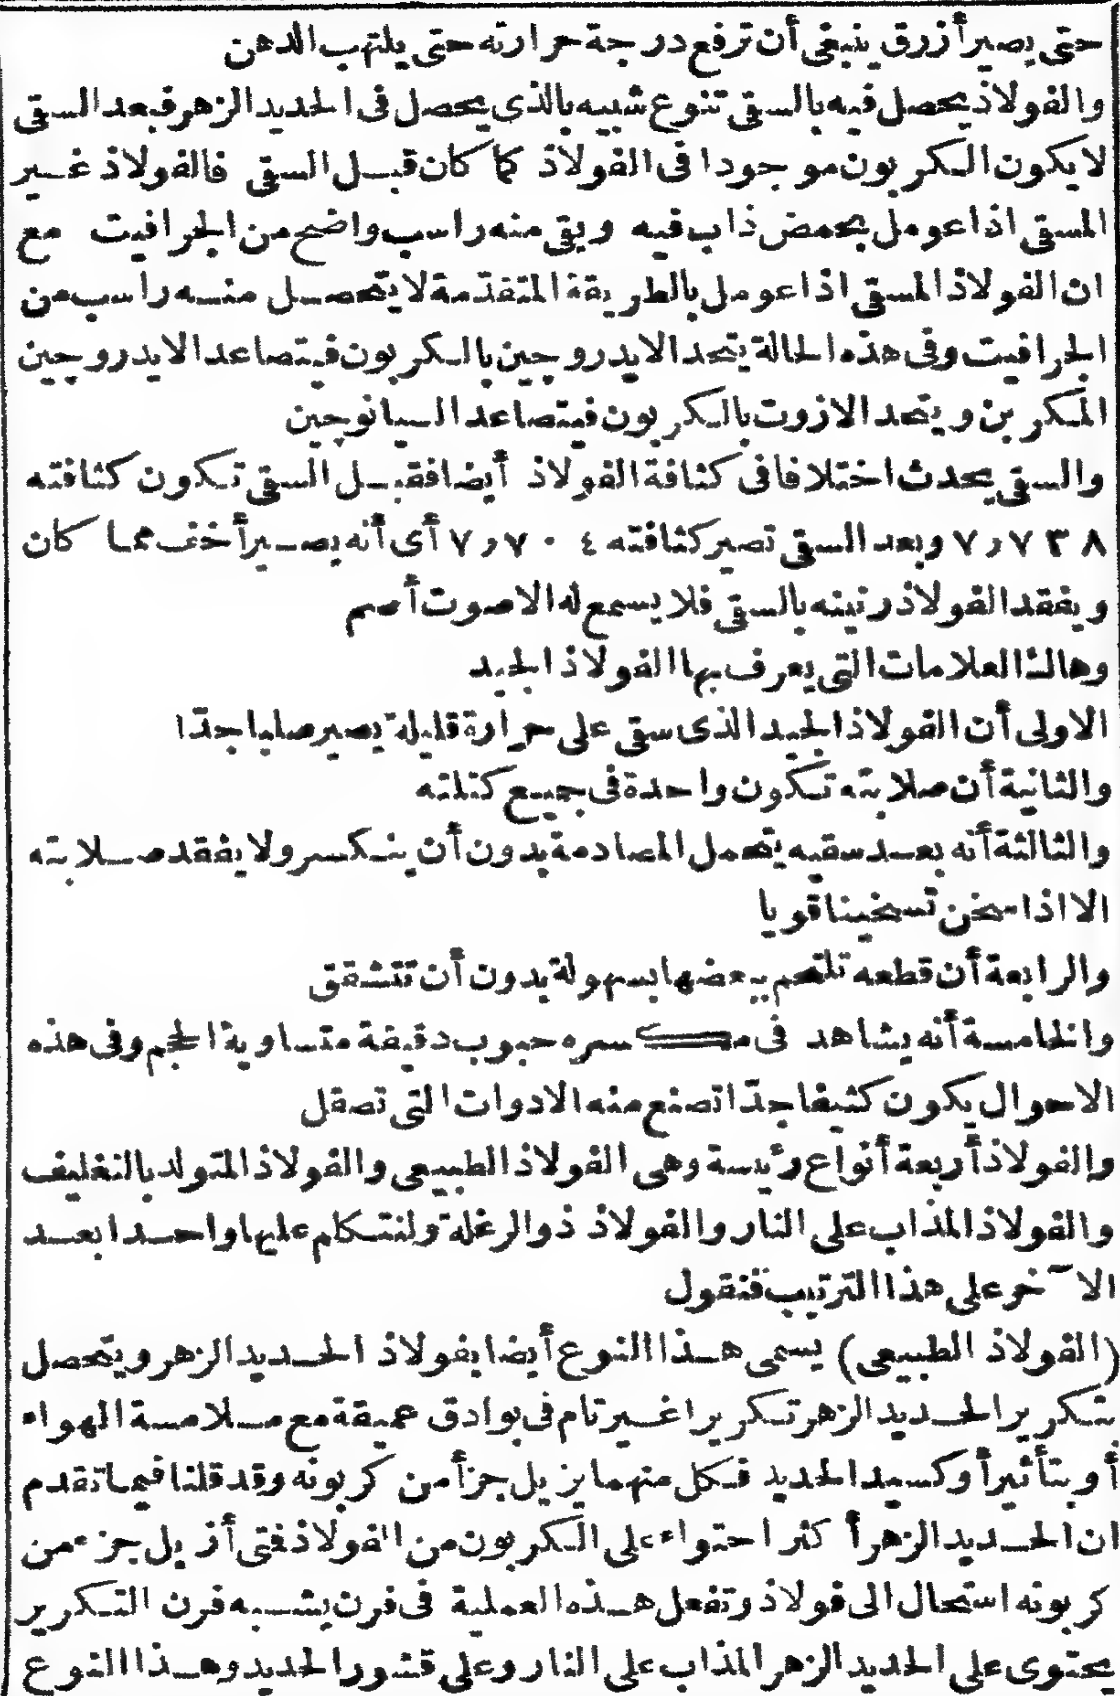 حتى يصير أزرق ينبغى أن ترفع درجة حرارته حتى يلتهب الدهن
والفولاذ يحصل فيه بالسقى تنوع شبيه بالذى يحصل فى الحديد الزهر فبعد السقى
لا يكون الكربون موجودا فى الفولاذ كما كان قبل السقى فالفولاذ غير
المسقى اذا عومل بحمض ذاب فيه ويبقى منه راسب واضح من الجرافيت مع
ان الفولاذ المسقى اذا عومل بالطريقة المتقدّمة لا يتحصل منه راسب من
الجرافيت وفى هذه الحالة يتحد الايدروجين بالكربون فيتصاعد الايدروجين
المكربن ويتحد الازوت بالكربون فيتصاعد السيانوجين
والسقى يحدث اختلافا فى كثافة الفولاذ أيضا فقبل السقى تكون كثافته
٧٫٧٣٨ وبعد السقى تصير كثافته ٧٫٧٠٤ أى أنه يصير أخف مما كان
ويفقد الفولاذ رنينه بالسقى فلا يسمع له الاصوت أصم
وهاك العلامات التى يعرف بها الفولاذ الجيد
الاولى أن الفولاذ الجيد الذى سقى على حرارة قليلة يصير صلبا جدّا
والثانية أن صلابته تكون واحدة فى جميع كتلته
والثالثة أنه بعد سقيه يتحمل المصادمة بدون أن ينكسر ولا يفقد صلابته
الا اذا سخن تسخينا قويا
والرابعة أن قطعه تلتحم ببعضها بسهولة بدون أن تتشقق
والخامسة أنه يشاهد فى مكسره حبوب دقيقة متساوية الحجم وفى هذه
الاحوال يكون كثيفا جدّا تصنع منه الادوات التى تصقل
والفولاذ أربعة أنواع رئيسة وهى الفولاذ الطبيعى والفولاذ المتولد بالتغليف
والفولاذ المذاب على النار والفولاذ ذو الرغلة ولنتكلم عليها واحدا بعد
الآخر على هذا الترتيب فنقول
(الفولاذ الطبيعى) يسمى هذا النوع أيضا بفولاذ الحديد الزهر ويتحصل
بتكرير الحديد الزهر تكريرا غير تام فى بوادق عميقة مع ملامسة الهواء
أو بتأثير أوكسيد الحديد فكل منهما يزيل جزأ من كربونه وقد قلنا فيما تقدم
ان الحديد الزهر أكثر احتواء على الكربون من الفولاذ فتى أزيل جزء من
كربونه استحال الى فولاذ وتفعل هذه العملية فى فرن يشبه فرن التكرير
يحتوى على الحديد الزهر المذاب على النار وعلى قشور الحديد وهذا النوع